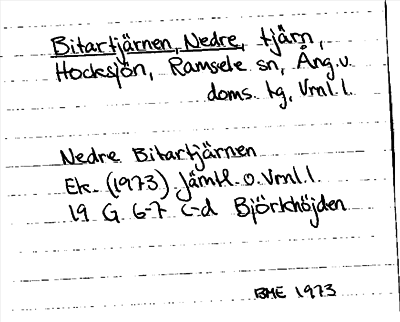 Bitartjärnen, Nedre, tjärn,
Hocksjön, Ramsele sn, Ång. v.
doms. tg, Vrnl. l.
Nedre Bitartjärnen
Ek. (1973) Jämtl. o. Vrnl. l.
19 G 6-7 c-d Björkhöjden
BME 1973